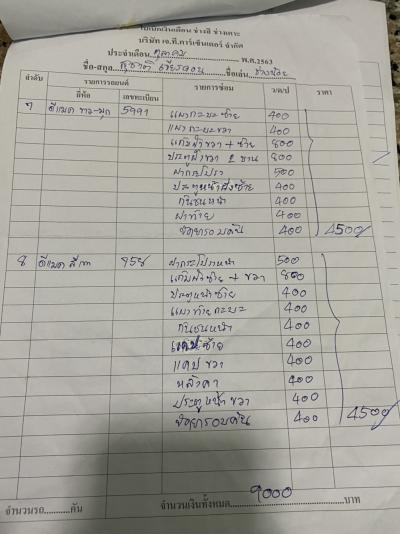 ใบเบิกเงินเดือน ช่างสี ช่างเคาะ
บริษัท เจ.ที.คาร์เซ็นเตอร์ จำกัด
ประจำเดือน ตุลาคม พ.ศ.2563
ชื่อ-สกุล สุชาติ ชื่อเล่น ช่างน้อย
ลำดับ รายการรถยนต์ รายการซ่อม ว/ด/ป ราคา
ยี่ห้อ เลขทะเบียน
7 ดีแมค ขาว-มุก 5991 แผงกะบะซ้าย 400
แผงกะบะขวา 400
แก้มขวา + ซ้าย 800
ประตูขวา 2 บาน 800
ฝากระโปรง 500
ประตูหน้าซ้าย 400
กันชนหน้า 400
ฝาท้าย 400
ขัดยารอบคัน 400 4500
8 ดีแมค สีเทา 958 ฝากระโปรงหน้า 500
แก้มซ้าย + ขวา 800
ประตูหน้าซ้าย 400
แผงท้ายกะบะ 400
กันชนหน้า 400
แคปซ้าย 400
แคปขวา 400
หลังคา 400
ประตูหน้าขวา 400
ขัดยารอบคัน 400 4500
จำนวนรถ คัน จำนวนเงินทั้งหมด 9000 บาท